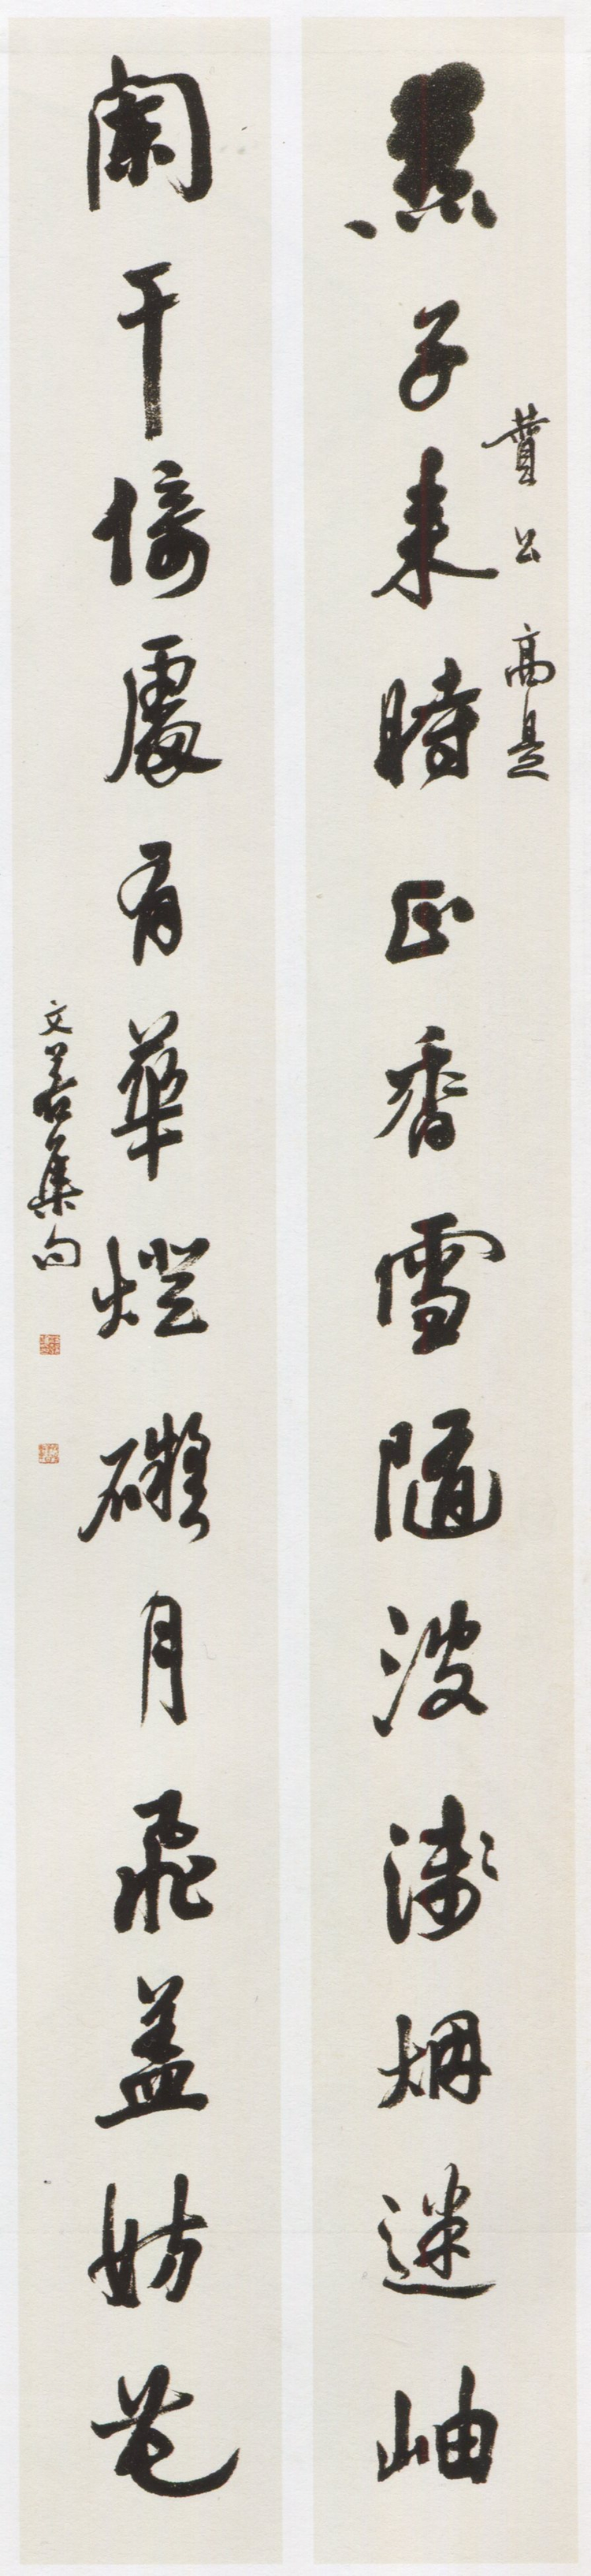 賁公高是
燕子来時正香雪隨波淺烟迷岫
闌干倚處有華燈礙月飛蓋妨花
文若集句